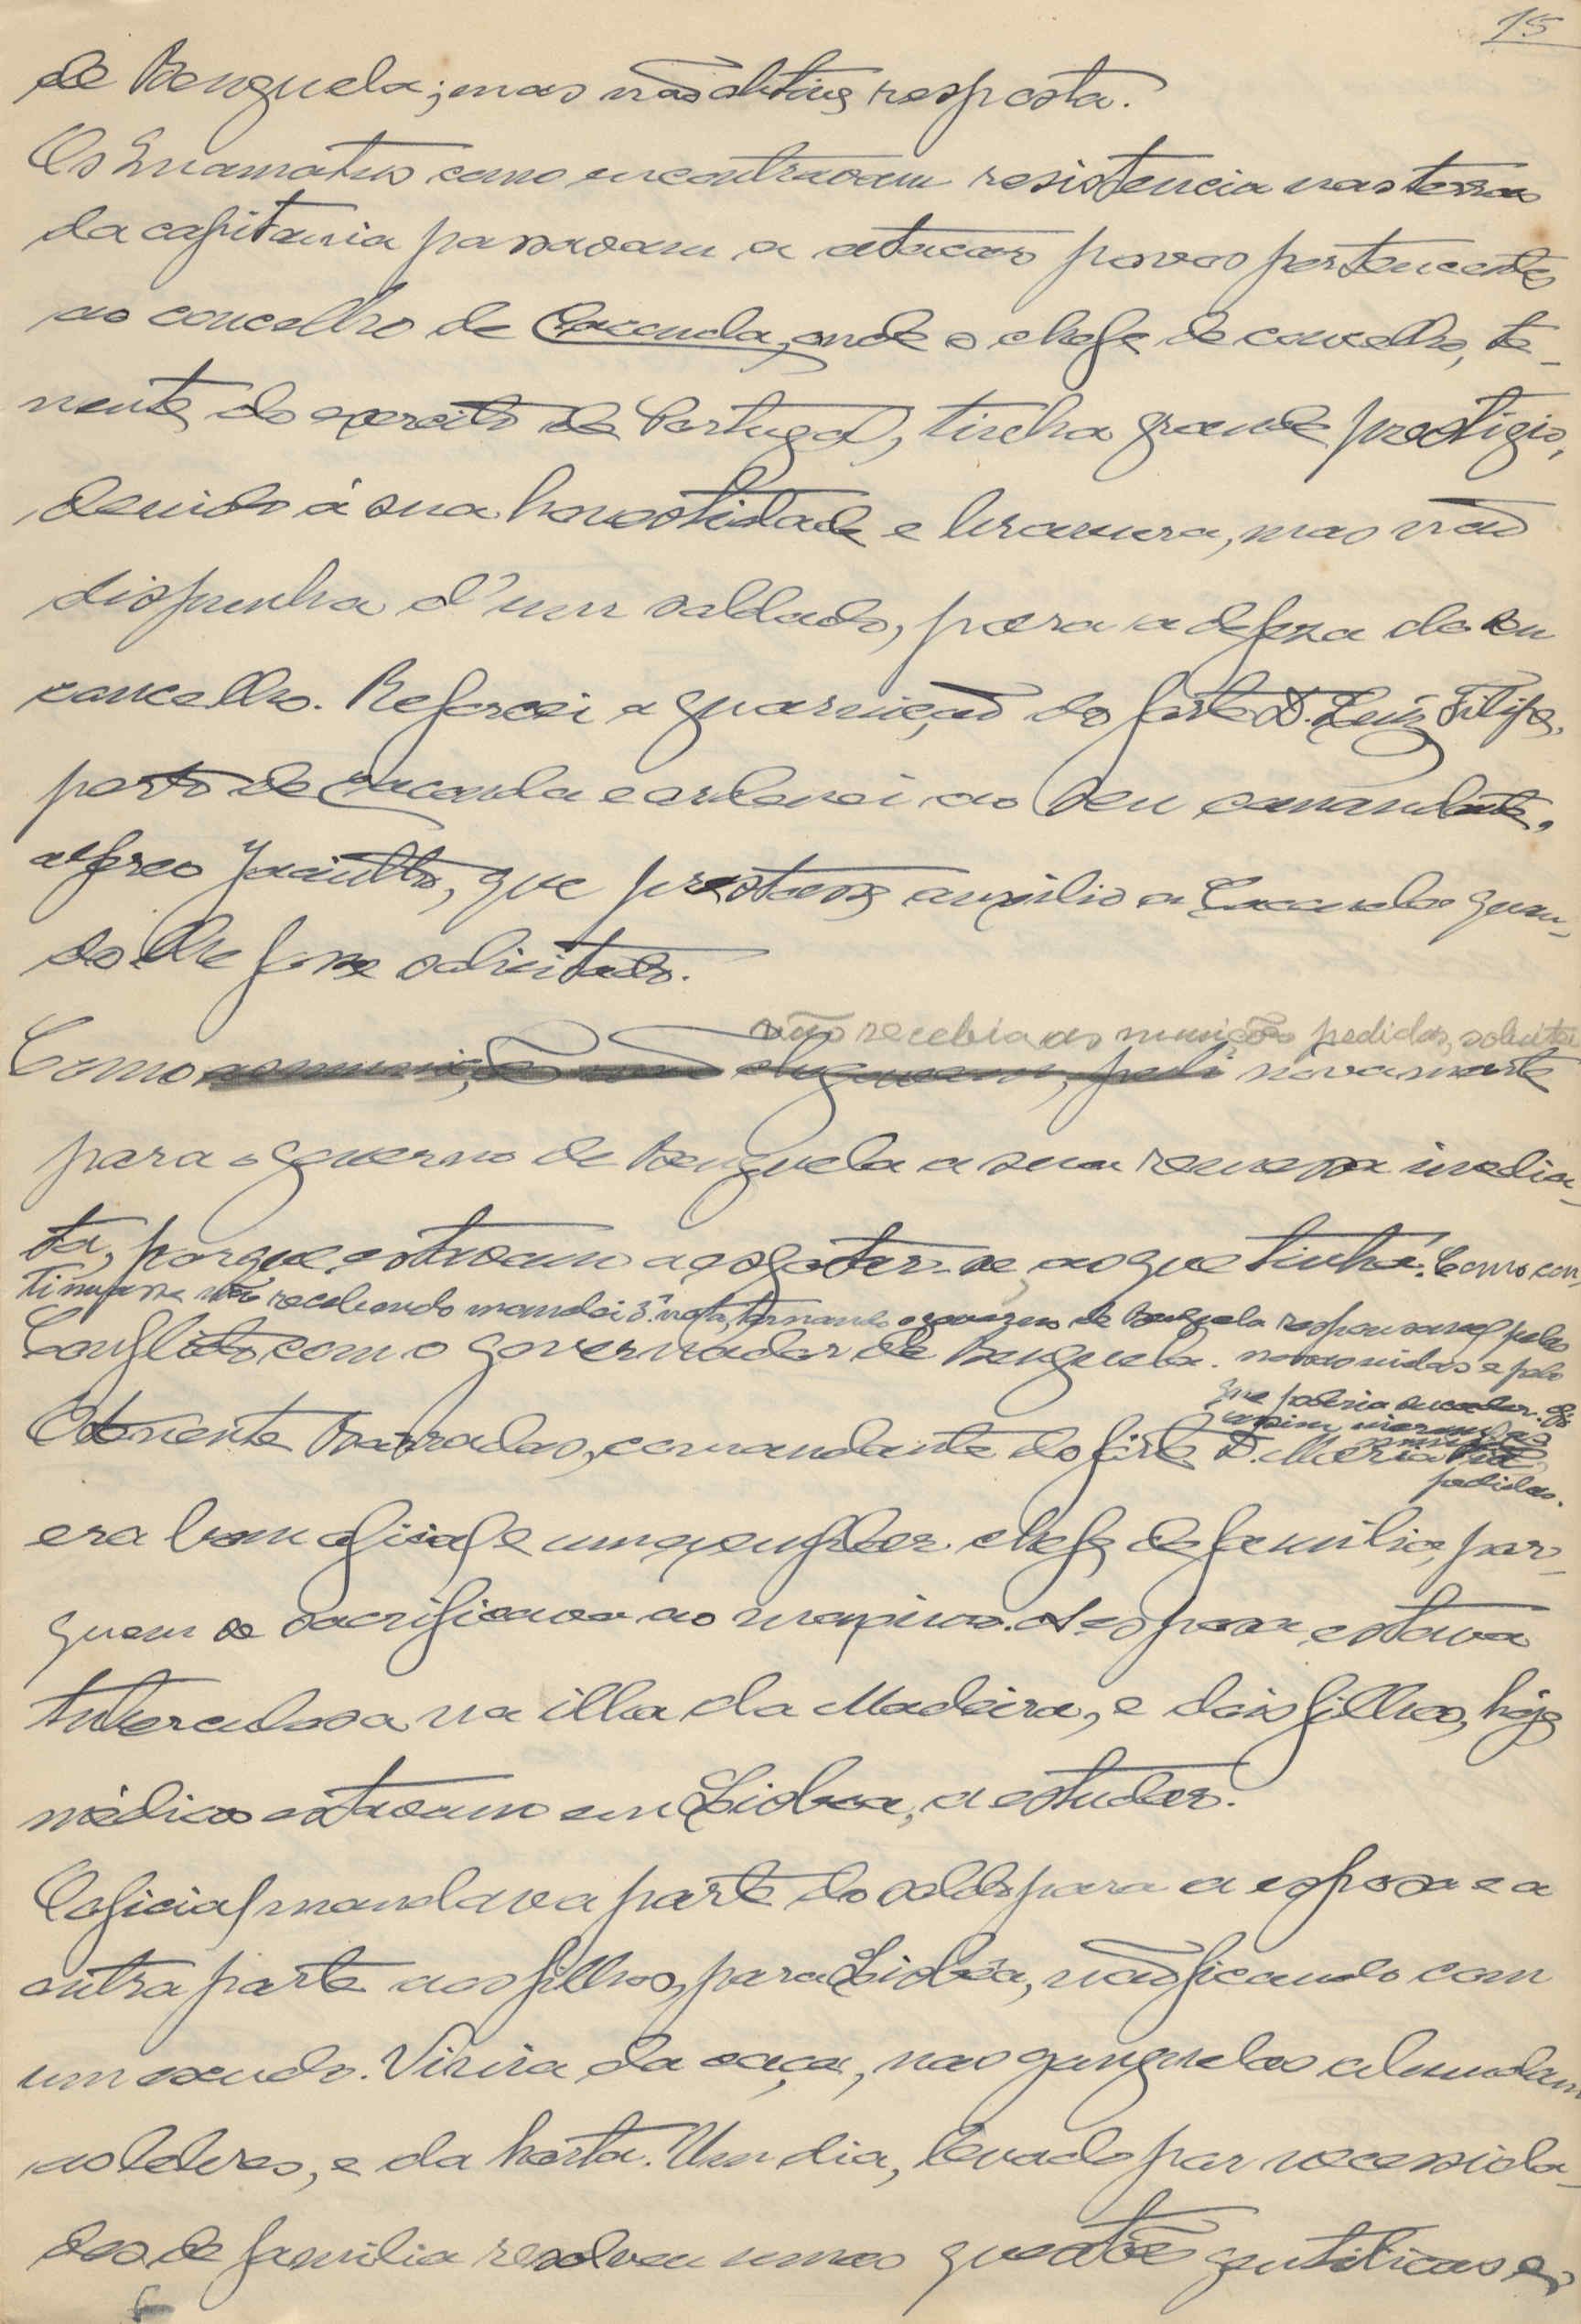 15
de Benguela; mas não obtive resposta.
Os Cuamatus como encontravam resistencia nas terras
da capitania passavam a atacar povos pertencentes
ao concelho de Caconda, onde o chefe de concelho, te-
nente do exercito de Portugal, tinha grande prestigio,
devido á sua honestidade e bravura, mas não
dispunha d'um soldado, para a defeza do seu
concelho. Reforcei a guarnição do forte D. Luiz Filipe,
perto de Caconda e ordenei ao seu comandante,
alferes Jacintho, que prestasse auxilio a Caconda quan-
do lhe fosse solicitado.
não recebia as munições pedidas, solicitei
Como as munições não chegavam, pedi novamente
para o governo de Benguela a sua remessa imedia-
ta, porque estavam a esgotar-se as que tinha. Como con-
tinuasse não recebendo mandei 3ª nota, tornando o governo de Benguela responsavel pelas
Conflito com o governador de Benguela. nossas vidas e pelo
que poderia suceder. Só
assim vieram as
munições
pedidas.
O tenente Barradas, comandante do forte D. Maria Pia
era bom oficial e um exemplar chefe de familia, por
quem se sacrificava ao maximo. A esposa estava
tuberculosa na ilha da Madeira, e dois filhos, hoje
médicos estavam em Lisboa, a estudar.
O oficial mandava parte do soldo para a esposa e a
outra parte aos filhos, para Lisboa, não ficando com
um escudo. Vivia da caça, nas ganguelas abundam
as lebres, e da horta. Um dia, levado por necessida-
des de familia resolveu umas questões gentilicas e,